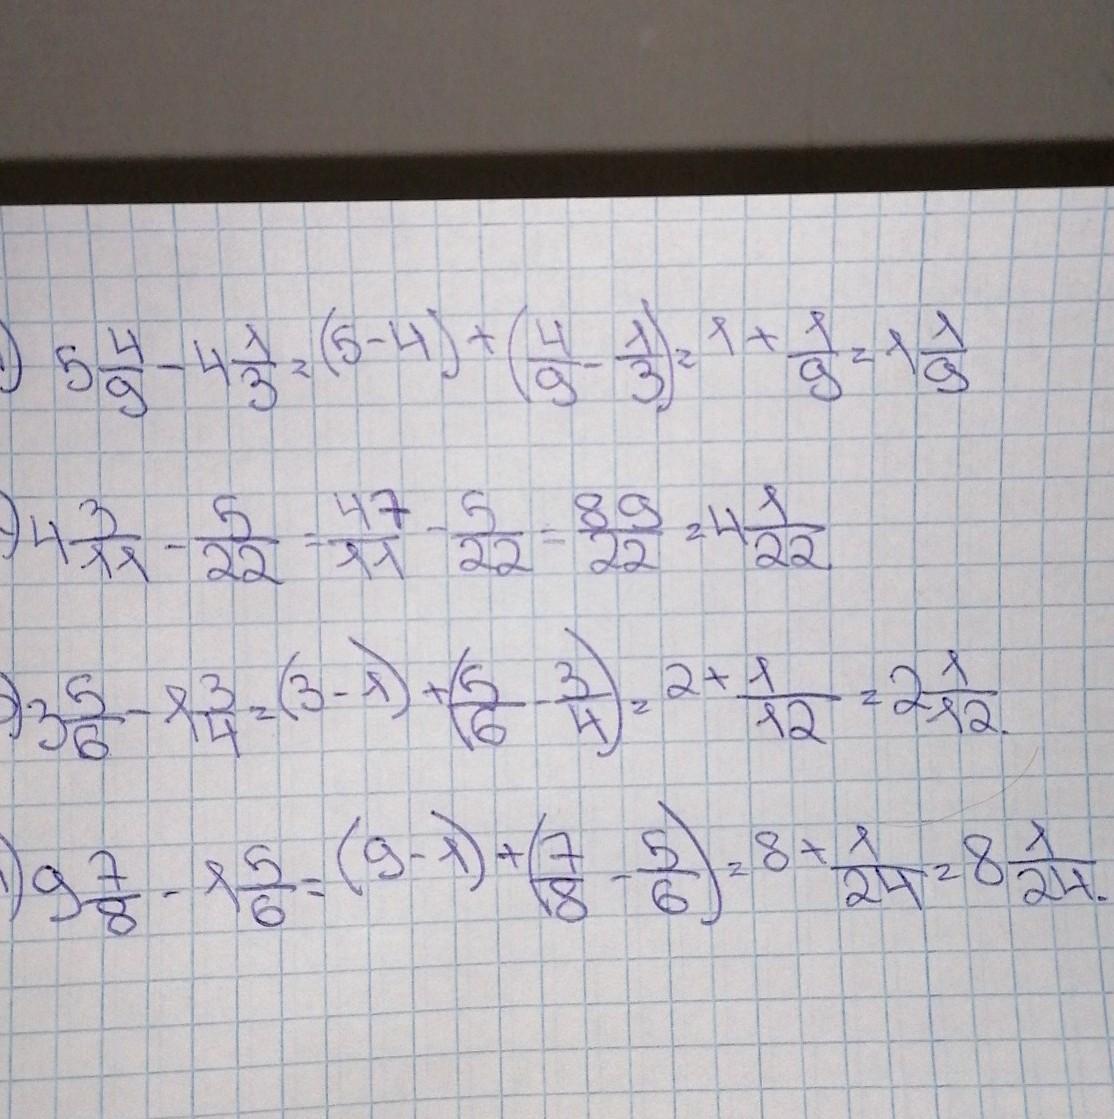 ) 5 4/9 - 4 1/3 = (5-4) + (4/9 - 1/3) = 1 + 1/9 = 1 1/9
) 4 3/11 - 5/22 = 47/11 - 5/22 = 89/22 = 4 1/22
) 3 5/6 - 1 3/4 = (3-1) + (5/6 - 3/4) = 2 + 1/12 = 2 1/12.
) 9 7/8 - 1 5/6 = (9-1) + (7/8 - 5/6) = 8 + 1/24 = 8 1/24.